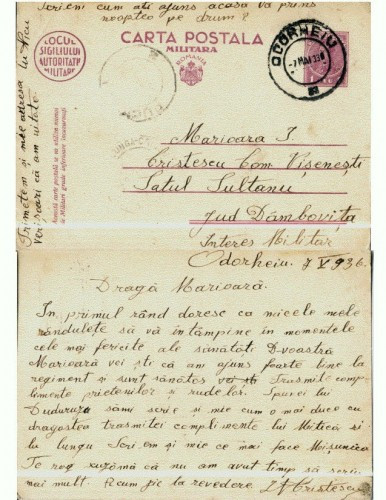 Scriem cum ați ajuns acasă vă prins
noaptea pe drum?
LOCUL
SIGILIULUI
AUTORITAȚII
MILITARE
CARTA POSTALA
MILITARA
ROMANIA
ODORHEIU
Trimetem și mie adresa lu Nicu
Verișcari că am uitato
Această carte poștală se va utiliza numai
Marioara I.
Cristescu Com Vișenești
Satul Sultanu
Jud Dâmbovița
Interes Militar
Odorheiu. 7 V 936.
Dragă Marioară.
In primul rând doresc ca nicele mele
rândulețe să vă întâmpine în momentele
cele mai fericite ale sănătăți D-voastră
Marioară voi ști că am ajuns foarte bine la
regiment și sunt sănătos Trasmite comp-
lemente prietenilor și rudelor. Spunei lui
Duduruza sămi scrie și mie cum o mai duce cu
dragostea trasmitei complimente lui Mitică și
lu lungu Scri-em și mie ce mai face Mișunica
Te rog să nu am avut timp să scriu
mai mult. Acum zic la revedere Cristescu